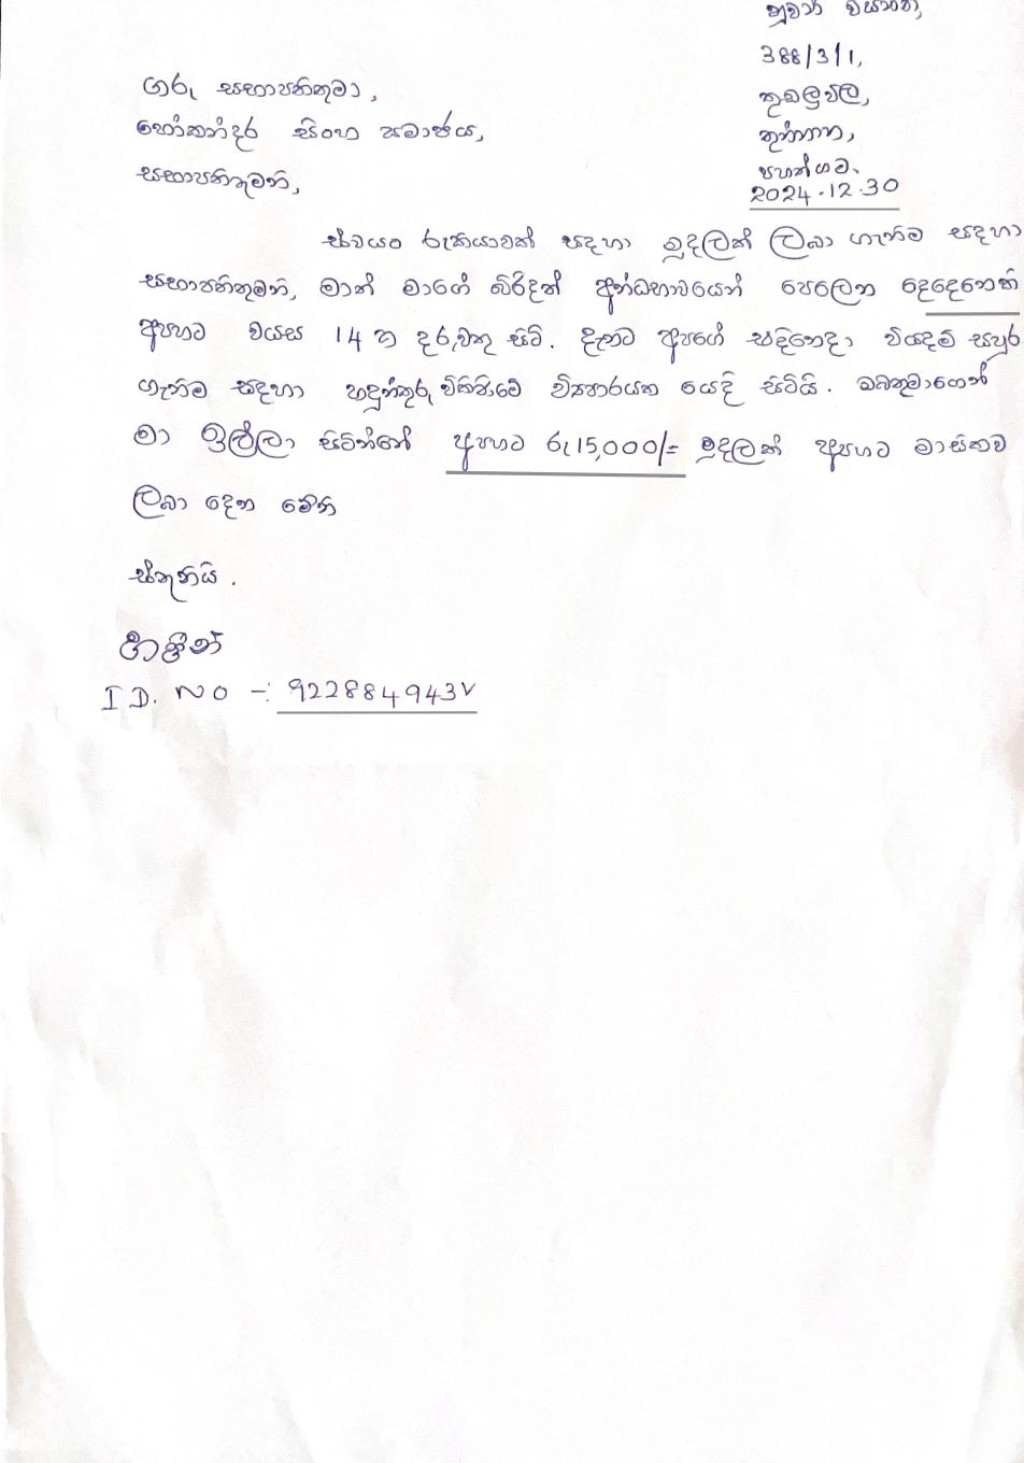 නුවන් වසන්ත,
388/3/1,
ගරු සභාපතිතුමා,
කුඩලුවිල,
හෝකන්දර සිංහ සමාජය,
තුන්නාන,
සභාපතිතුමනි,
පහත්ගම.
2024.12.30
ස්වයං රුකියාවක් සදහා මුදලක් ලබා ගැනීම සදහා
සභාපතිතුමනි, මාත් මාගේ බිරිදත් අන්ධභාවයෙන් පෙලෙන දෙදෙනෙකි
අපහට වයස 14 ක දරුවකු සිටී. දැනට අපගේ එදිනෙදා වියදම් සපුරා
ගැනීම සදහා හදුන්කූරු විකිණීමේ ව්‍යාපාරයක යෙදී සිටියි. ඔබතුමාගෙන්
මා ඉල්ලා සිටින්නේ අපහට රු 15,000/= මුදලක් අපහට මාසිකව
ලබා දෙන මෙනි
ස්තූතියි.
I D. NO -: 922884943V